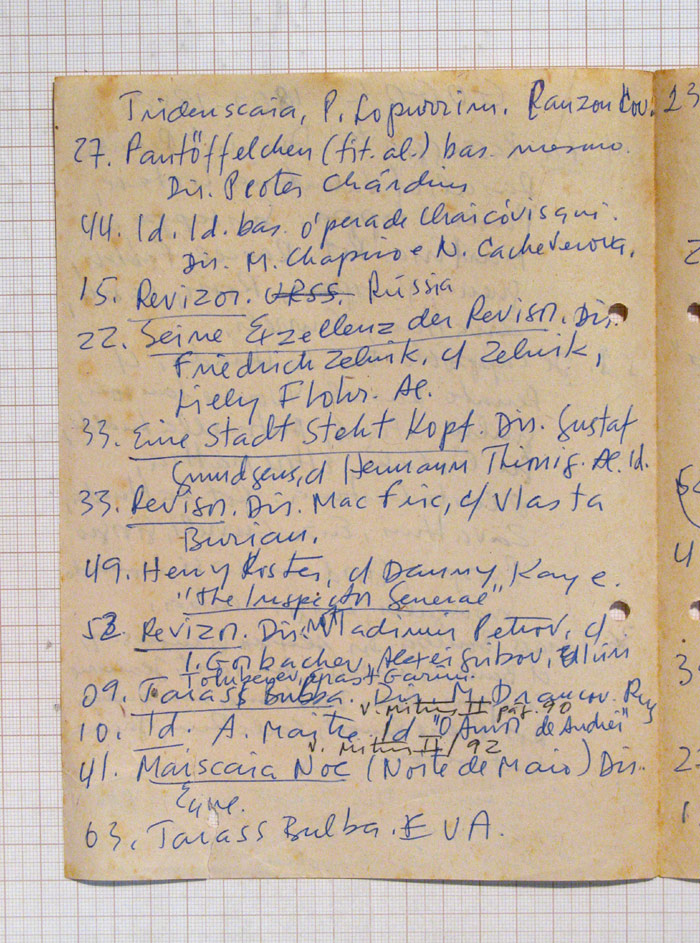 Tridenscaia, P. Lopurrim. Ranzon Cov. 23
27. Pantöffelchen (tit. al.) bas. mesmo.
Dir. Peoter Chárdin
44. Id. Id. bas. ópera de Chaicóvisqui.
Dir. M. Chapiro e N. Cacheverova.
15. Revizor. URSS. Rússia
22. Seine Exzellenz der Revisor. Dir.
Friedrich Zelnik, c/ Zelnik,
Lielly Flohr. Al.
33. Eine Stadt Steht Kopf. Dir. Gustaf
Grundgens, c/ Hermann Thimig. Al. Id.
33. Revisor. Dir. Mac Fric, c/ Vlasta
Burian.
49. Henry Koster, c/ Danny Kaye.
"The Inspector General"
52. Revizor. Dir. Vladimir Petrov, c/
I. Gorbachev, Alexei Gribov, Iúri
Tolubeyev, Garin.
09. Tarass Bulba. Dir. M. Drancov. Rus
v. mitus II pág. 90
10. Id. A. Maitre. Id "O Amor de Andrei"
v. mitus II / 92
41. Maiscaia Noc (Noite de Maio) Dir.
63. Tarass Bulba. EUA.